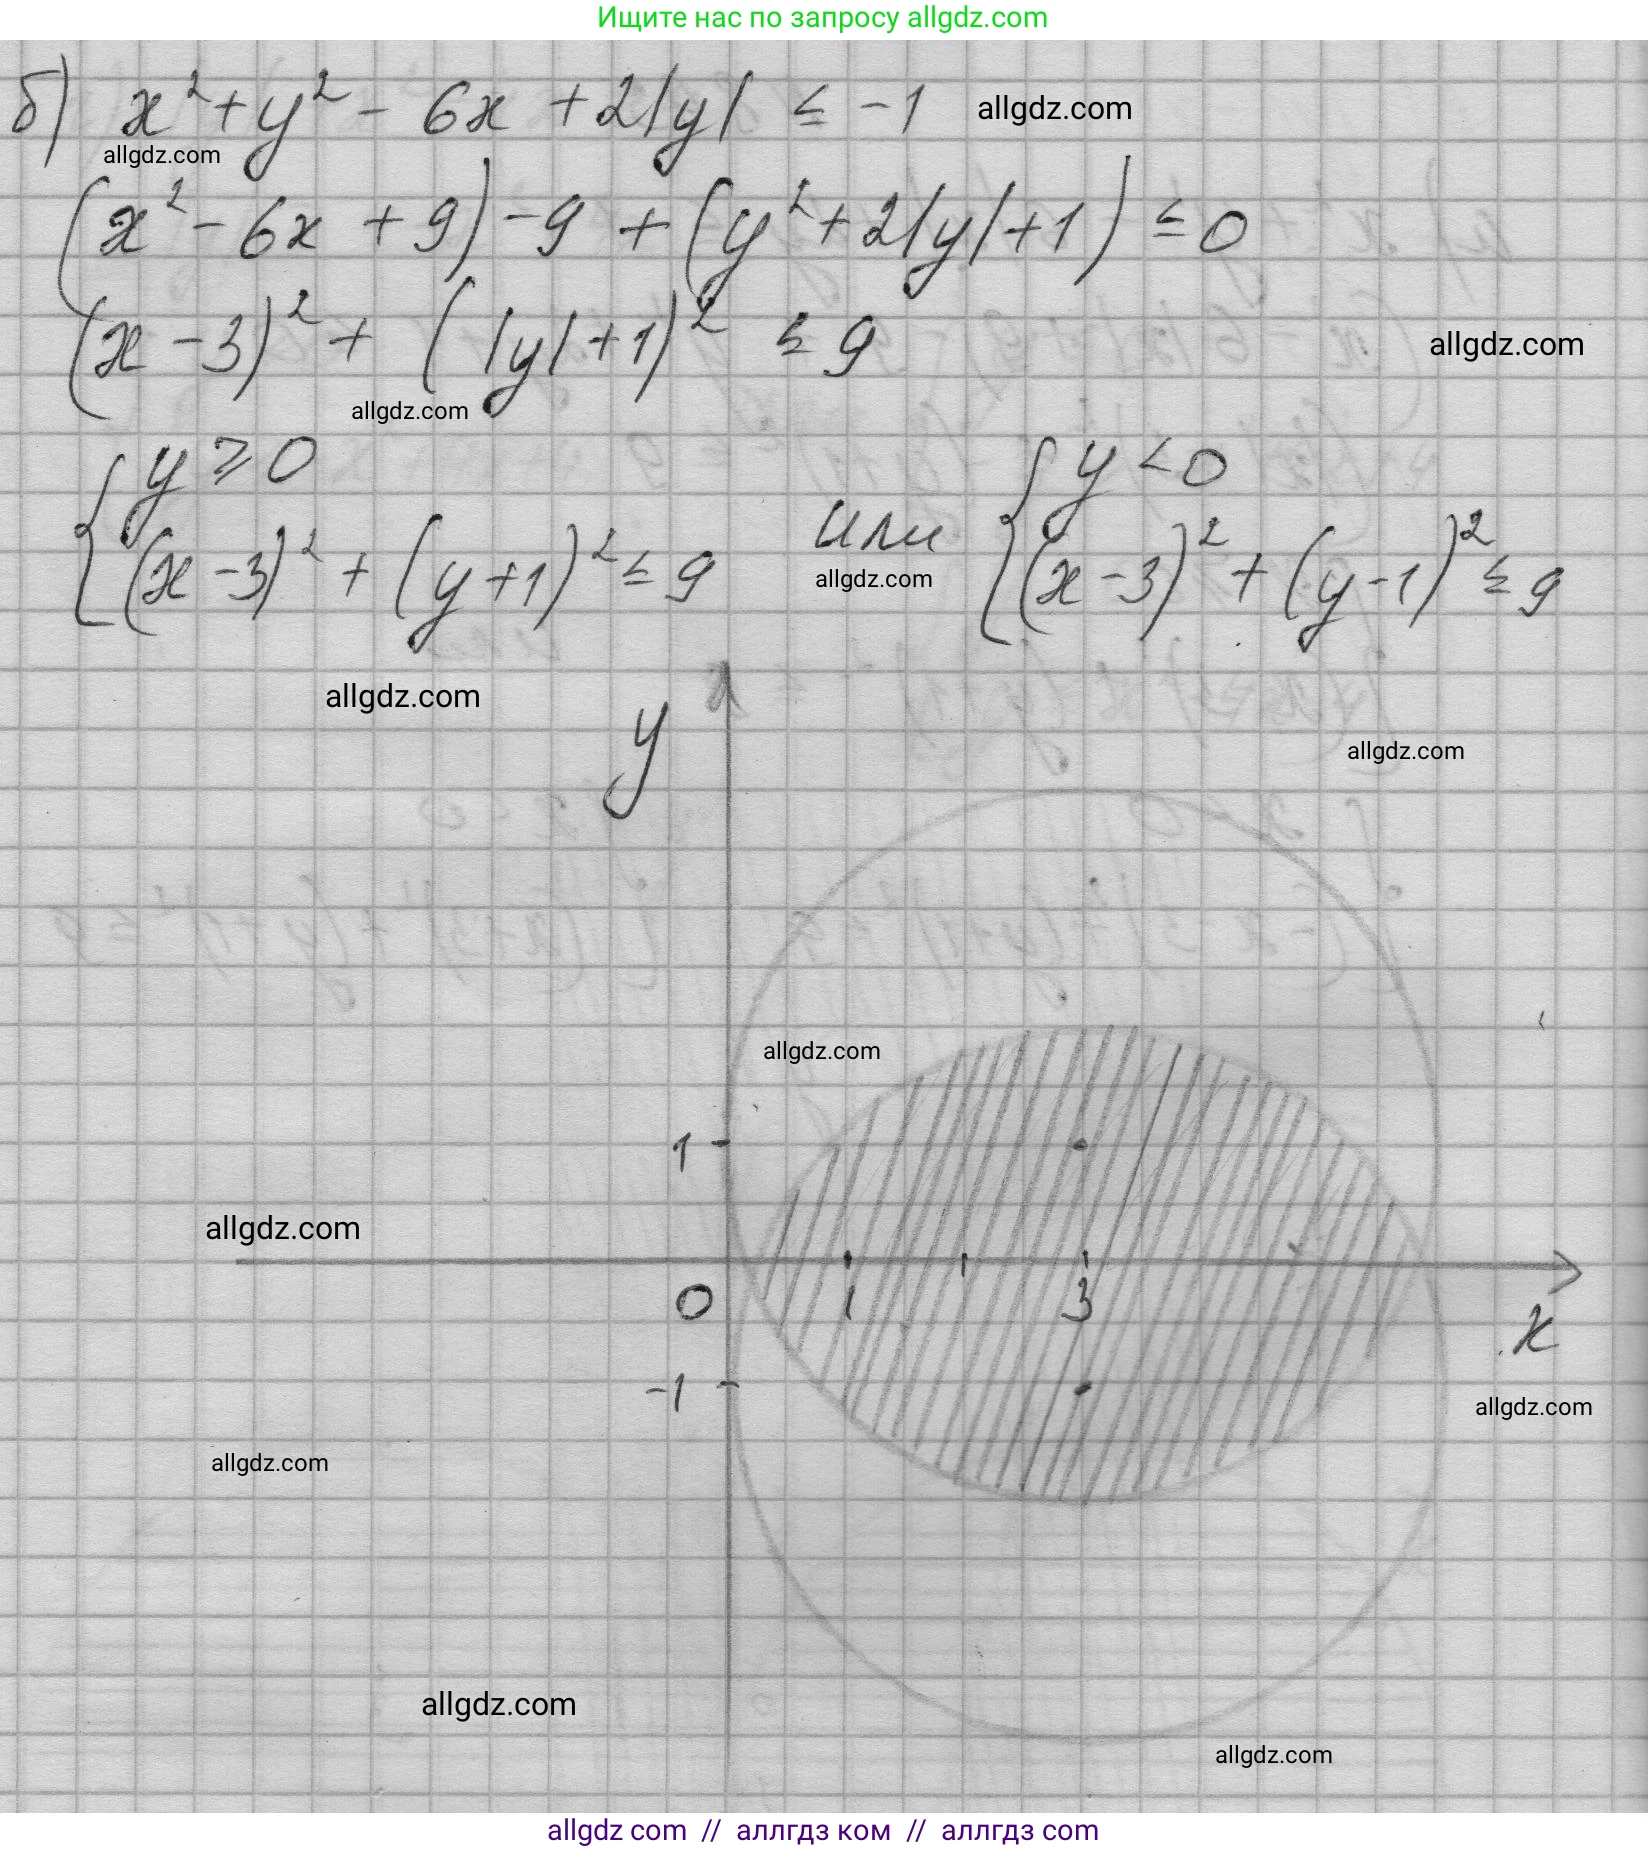 Ищите нас по запросу allgdz.com
б) x² + y² - 6x + 2|y| ≤ -1 allgdz.com
allgdz.com
(x² - 6x + 9) - 9 + (y² + 2|y| + 1) ≤ 0
(x - 3)² + (|y| + 1)² ≤ 9 allgdz.com
allgdz.com
{ y ≥ 0 { y < 0
(x - 3)² + (y + 1)² ≤ 9 или (x - 3)² + (y - 1)² ≤ 9
allgdz.com
allgdz.com
y
allgdz.com
allgdz.com
1
allgdz.com
0 1 3
x
-1
allgdz.com
allgdz.com
allgdz.com
allgdz.com
allgdz com // аллгдз ком // аллгдз com